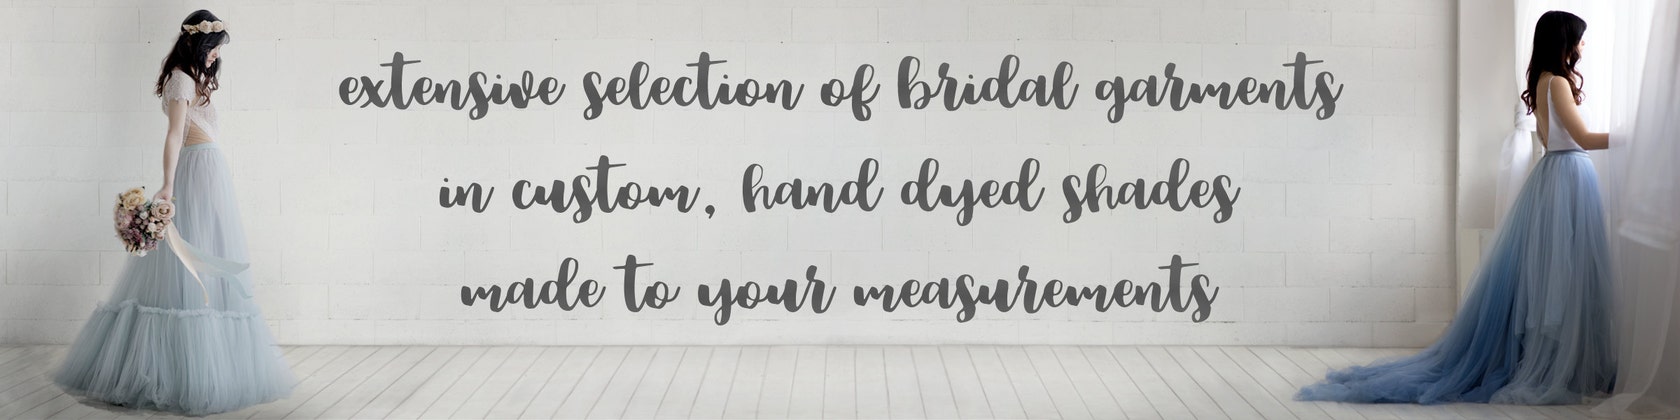 extensive selection of bridal garments
in custom, hand dyed shades
made to your measurements